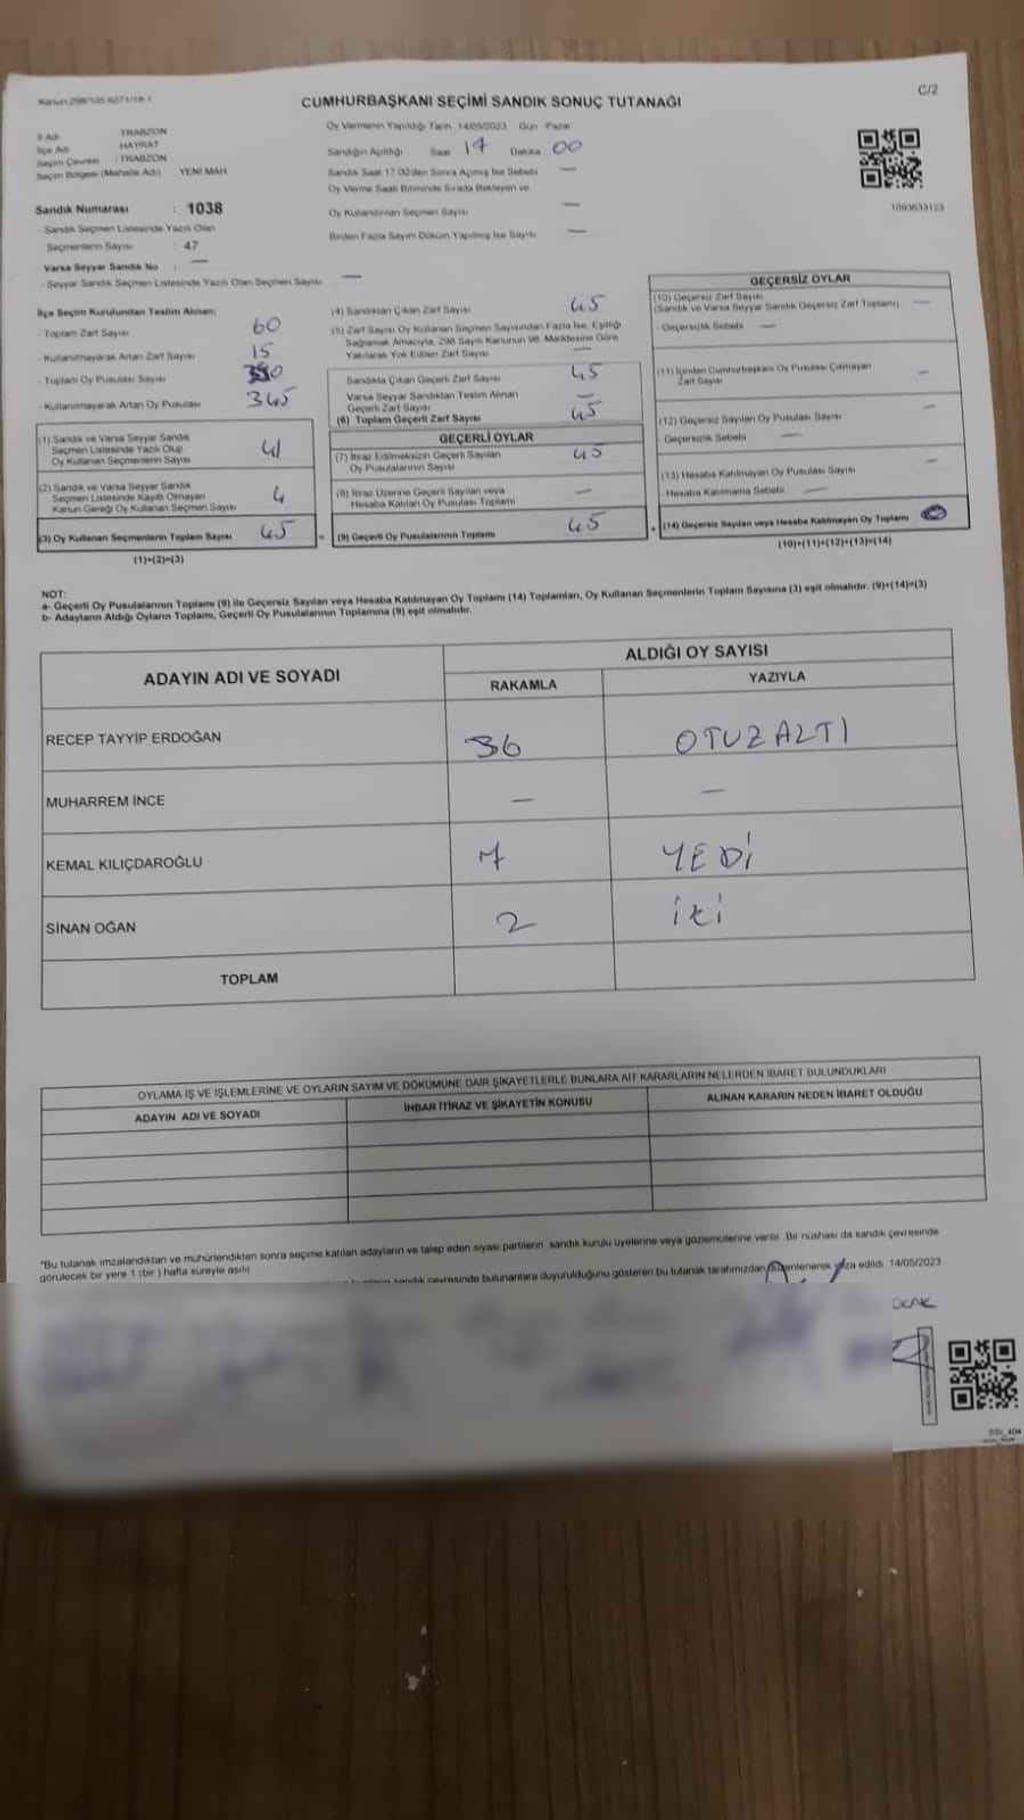 C/2
CUMHURBAŞKANI SEÇİMİ SANDIK SONUÇ TUTANAĞI
İl Adı : TRABZON
İlçe Adı : HAYRAT
Seçim Çevresi : TRABZON
Seçim Bölgesi (Mahalle Adı) : YENİ MAH
Sandık Numarası : 1038
- Sandık Seçmen Listesinde Yazılı Olan
Seçmenlerin Sayısı : 47
Varsa Seyyar Sandık No : —
- Seyyar Sandık Seçmen Listesinde Yazılı Olan Seçmen Sayısı —
Oy Vermenin Yapıldığı Tarih 14/05/2023 Gün Pazar
Sandığın Açıldığı Saat 17 Dakika 00
Sandık Saat 17.00'den Sonra Açılmış İse Sebebi —
Oy Verme Saati Bitiminde Sırada Bekleyen ve
Oy Kullandırılan Seçmen Sayısı —
Birden Fazla Sayım Döküm Yapılmış İse Sayısı —
1093633123
İlçe Seçim Kurulundan Teslim Alınan;
- Toplam Zarf Sayısı 60
- Kullanılmayarak Artan Zarf Sayısı 15
- Toplam Oy Pusulası Sayısı
- Kullanılmayarak Artan Oy Pusulası 345
(1) Sandık ve Varsa Seyyar Sandık
Seçmen Listesinde Yazılı Olup
Oy Kullanan Seçmenlerin Sayısı 41
(2) Sandık ve Varsa Seyyar Sandık
Seçmen Listesinde Kayıtlı Olmayan
Kanun Gereği Oy Kullanan Seçmen Sayısı 4
(3) Oy Kullanan Seçmenlerin Toplam Sayısı 45
(1)+(2)=(3)
(4) Sandıktan Çıkan Zarf Sayısı 45
(5) Zarf Sayısı Oy Kullanan Seçmen Sayısından Fazla İse, Eşitliği
Sağlamak Amacıyla, 298 Sayılı Kanunun 98. Maddesine Göre
Yakılarak Yok Edilen Zarf Sayısı —
Sandıkta Çıkan Geçerli Zarf Sayısı 45
Varsa Seyyar Sandıktan Teslim Alınan
Geçerli Zarf Sayısı —
(6) Toplam Geçerli Zarf Sayısı 45
GEÇERLİ OYLAR
(7) İtiraz Edilmeksizin Geçerli Sayılan
Oy Pusulalarının Sayısı 45
(8) İtiraz Üzerine Geçerli Sayılan veya
Hesaba Katılan Oy Pusulası Toplamı —
(9) Geçerli Oy Pusulalarının Toplamı 45
GEÇERSİZ OYLAR
(10) Geçersiz Zarf Sayısı
(Sandık ve Varsa Seyyar Sandık Geçersiz Zarf Toplamı) —
- Geçersizlik Sebebi —
(11) İçinden Cumhurbaşkanı Oy Pusulası Çıkmayan
Zarf Sayısı —
(12) Geçersiz Sayılan Oy Pusulası Sayısı —
Geçersizlik Sebebi —
(13) Hesaba Katılmayan Oy Pusulası Sayısı —
Hesaba Katılmama Sebebi —
(14) Geçersiz Sayılan veya Hesaba Katılmayan Oy Toplamı
(10)+(11)+(12)+(13)=(14)
NOT:
a- Geçerli Oy Pusulalarının Toplamı (9) ile Geçersiz Sayılan veya Hesaba Katılmayan Oy Toplamı (14) Toplamları, Oy Kullanan Seçmenlerin Toplam Sayısına (3) eşit olmalıdır. (9)+(14)=(3)
b- Adayların Aldığı Oyların Toplamı, Geçerli Oy Pusulalarının Toplamına (9) eşit olmalıdır.
ADAYIN ADI VE SOYADI ALDIĞI OY SAYISI
RAKAMLA YAZIYLA
RECEP TAYYİP ERDOĞAN 36 OTUZALTI
MUHARREM İNCE — —
KEMAL KILIÇDAROĞLU 7 YEDİ
SİNAN OĞAN 2 İKİ
TOPLAM
OYLAMA İŞ VE İŞLEMLERİNE VE OYLARIN SAYIM VE DÖKÜMÜNE DAİR ŞİKAYETLERLE BUNLARA AİT KARARLARIN NELERDEN İBARET BULUNDUKLARI
ADAYIN ADI VE SOYADI İHBAR İTİRAZ VE ŞİKAYETİN KONUSU ALINAN KARARIN NEDEN İBARET OLDUĞU
*Bu tutanak imzalandıktan ve mühürlendikten sonra seçime katılan adayların ve talep eden siyasi partilerin sandık kurulu üyelerine veya gözlemcilerine verilir. Bir nüshası da sandık çevresinde
görülecek bir yere 1 (bir ) hafta süreyle asılır.
sandık çevresinde bulunanlara duyurulduğunu gösteren bu tutanak tarafımızdan düzenlenerek imza edildi. 14/05/2023